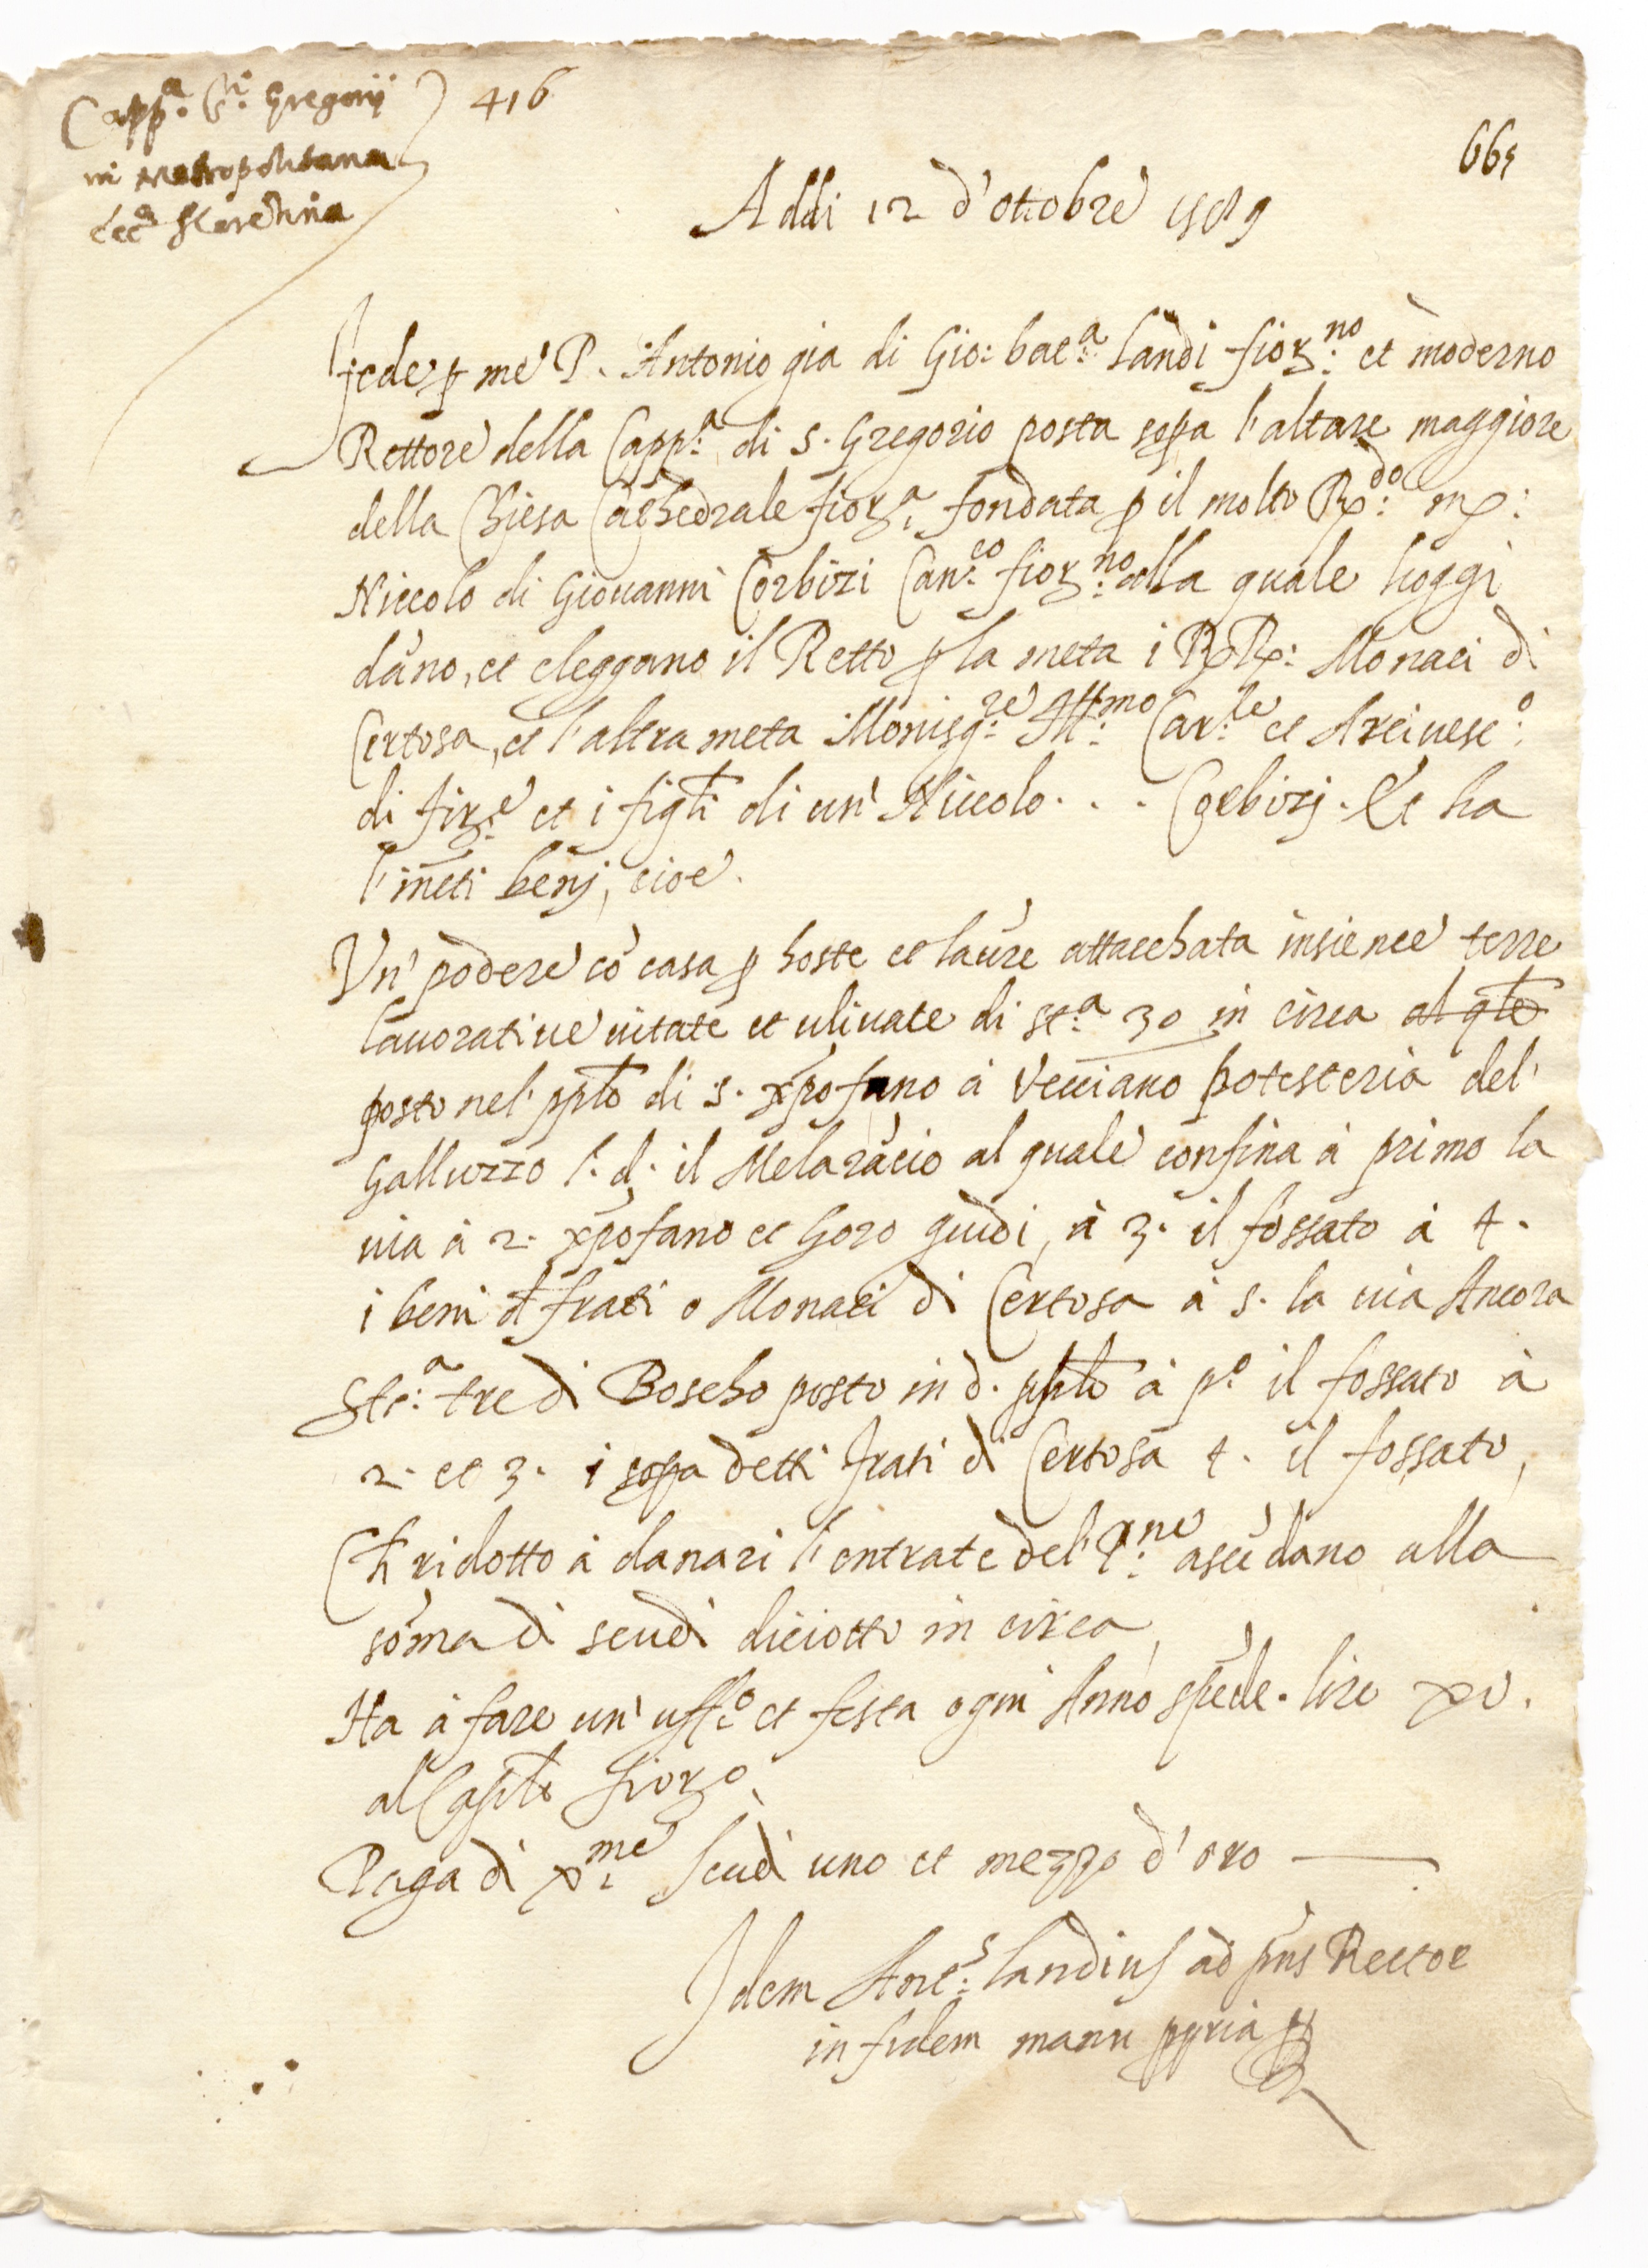 Capp.a S.ti Gregorij
in Metropolitana
ecc.a florentina
416
665
Addi 12 d'ottobre 1589
Fede p me P. Antonio gia di Gio: bat.a Landi fior.no et moderno
Rettore della Capp.a di S. Gregorio posta sopa l'altare maggiore
della Chiesa Cathedrale fior.a fondata p il molto R.do m.
Niccolo di Giouanni Corbizi Can.co fior.no alla quale hoggi
dāno, et eleggano il Retto p la meta i RR: Monaci di
Certosa, et l'altra meta Monisg.re Ill.mo Car.le et Arciuesc.o
di fir.e et i figli di un' Niccolo . . . Corbizj. Et ha
l'infti benj, cioe.
Un' podere cō casa p hoste et laūre attacchata insieme terre
lauoratiue uitate et uliuate di st.a 30 in circa al qle
posto nel pplo di S. Xpofano à Vecciano potesteria del'
Galluzzo l. d. il Melarācio al quale confina à primo la
uia à 2. Xpofano et Goro guidi, à 3. il fossato à 4.
i beni d frati o Monaci di Certosa à 5. la uia Ancora
Ste.a tre di Boscho posto in d. pplo à p.o il fossato à
2. et 3. i sopa detti frati di Certosa 4. il fossato,
Ch ridotto à danari l'entrate del' P.ne ascēdano alla
sōma di scudi diciotto in circa,
Ha à fare un' uff.o et festa ogni Anno spēde. lire xv.
al Caplo fior.o
Paga di X.me Scudi uno et mezzo d'oro
Idem Ant.s Landius ad pns Rector
in fidem manu ppria